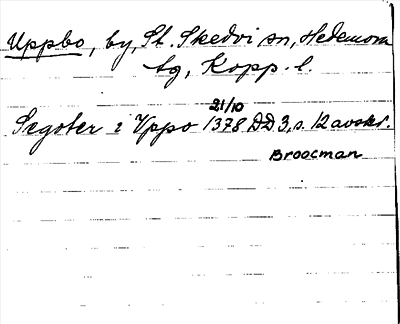 Uppbo, by, St. Skedvi sn, Hedemora
tg, Kopp. l.
21/10
Sigoter i Vppo 1378 DD 3, s. 12 avskr.
Broocman